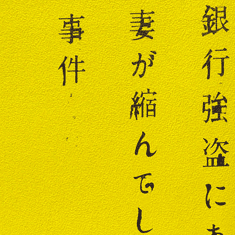 銀行強盗にあ
妻が縮んでし
事件